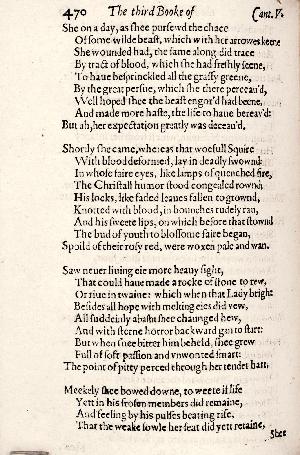 470 The third Booke of Cant. V.
She on a day, as shee pursewd the chace
Of some wilde beast, which with her arrowes keene
She wounded had, the same along did trace
By tract of blood, which she had freshly seene,
To haue besprinckled all the grassy greene,
By the great persue, which she there perceau'd,
Well hoped shee the beast engor'd had beene,
And made more haste, the life to haue bereau'd:
But ah, her expectation greatly was deceau'd.
Shortly she came, whereas that woefull Squire
With blood deformed, lay in deadly swownd:
In whose faire eyes, like lamps of quenched fire,
The Christall humor stood congealed rownd;
His locks, like faded leaues fallen to grownd,
Knotted with blood, in bounches rudely ran,
And his sweete lips, on which before that stownd
The bud of youth to blossome faire began,
Spoild of their rosy red, were woxen pale and wan.
Saw neuer liuing eie more heauy sight,
That could haue made a rocke of stone to rew,
Or riue in twaine: which when that Lady bright
Besides all hope with melting eies did vew,
All suddeinly abasht shee chaunged hew,
And with sterne horror backward gan to start:
But when shee better him beheld, shee grew
Full of soft passion and vnwonted smart:
The point of pitty perced through her tender hart.
Meekely shee bowed downe, to weete if life
Yett in his frosen members did remaine,
And feeling by his pulses beating rife,
That the weake sowle her seat did yett retaine,
Shee